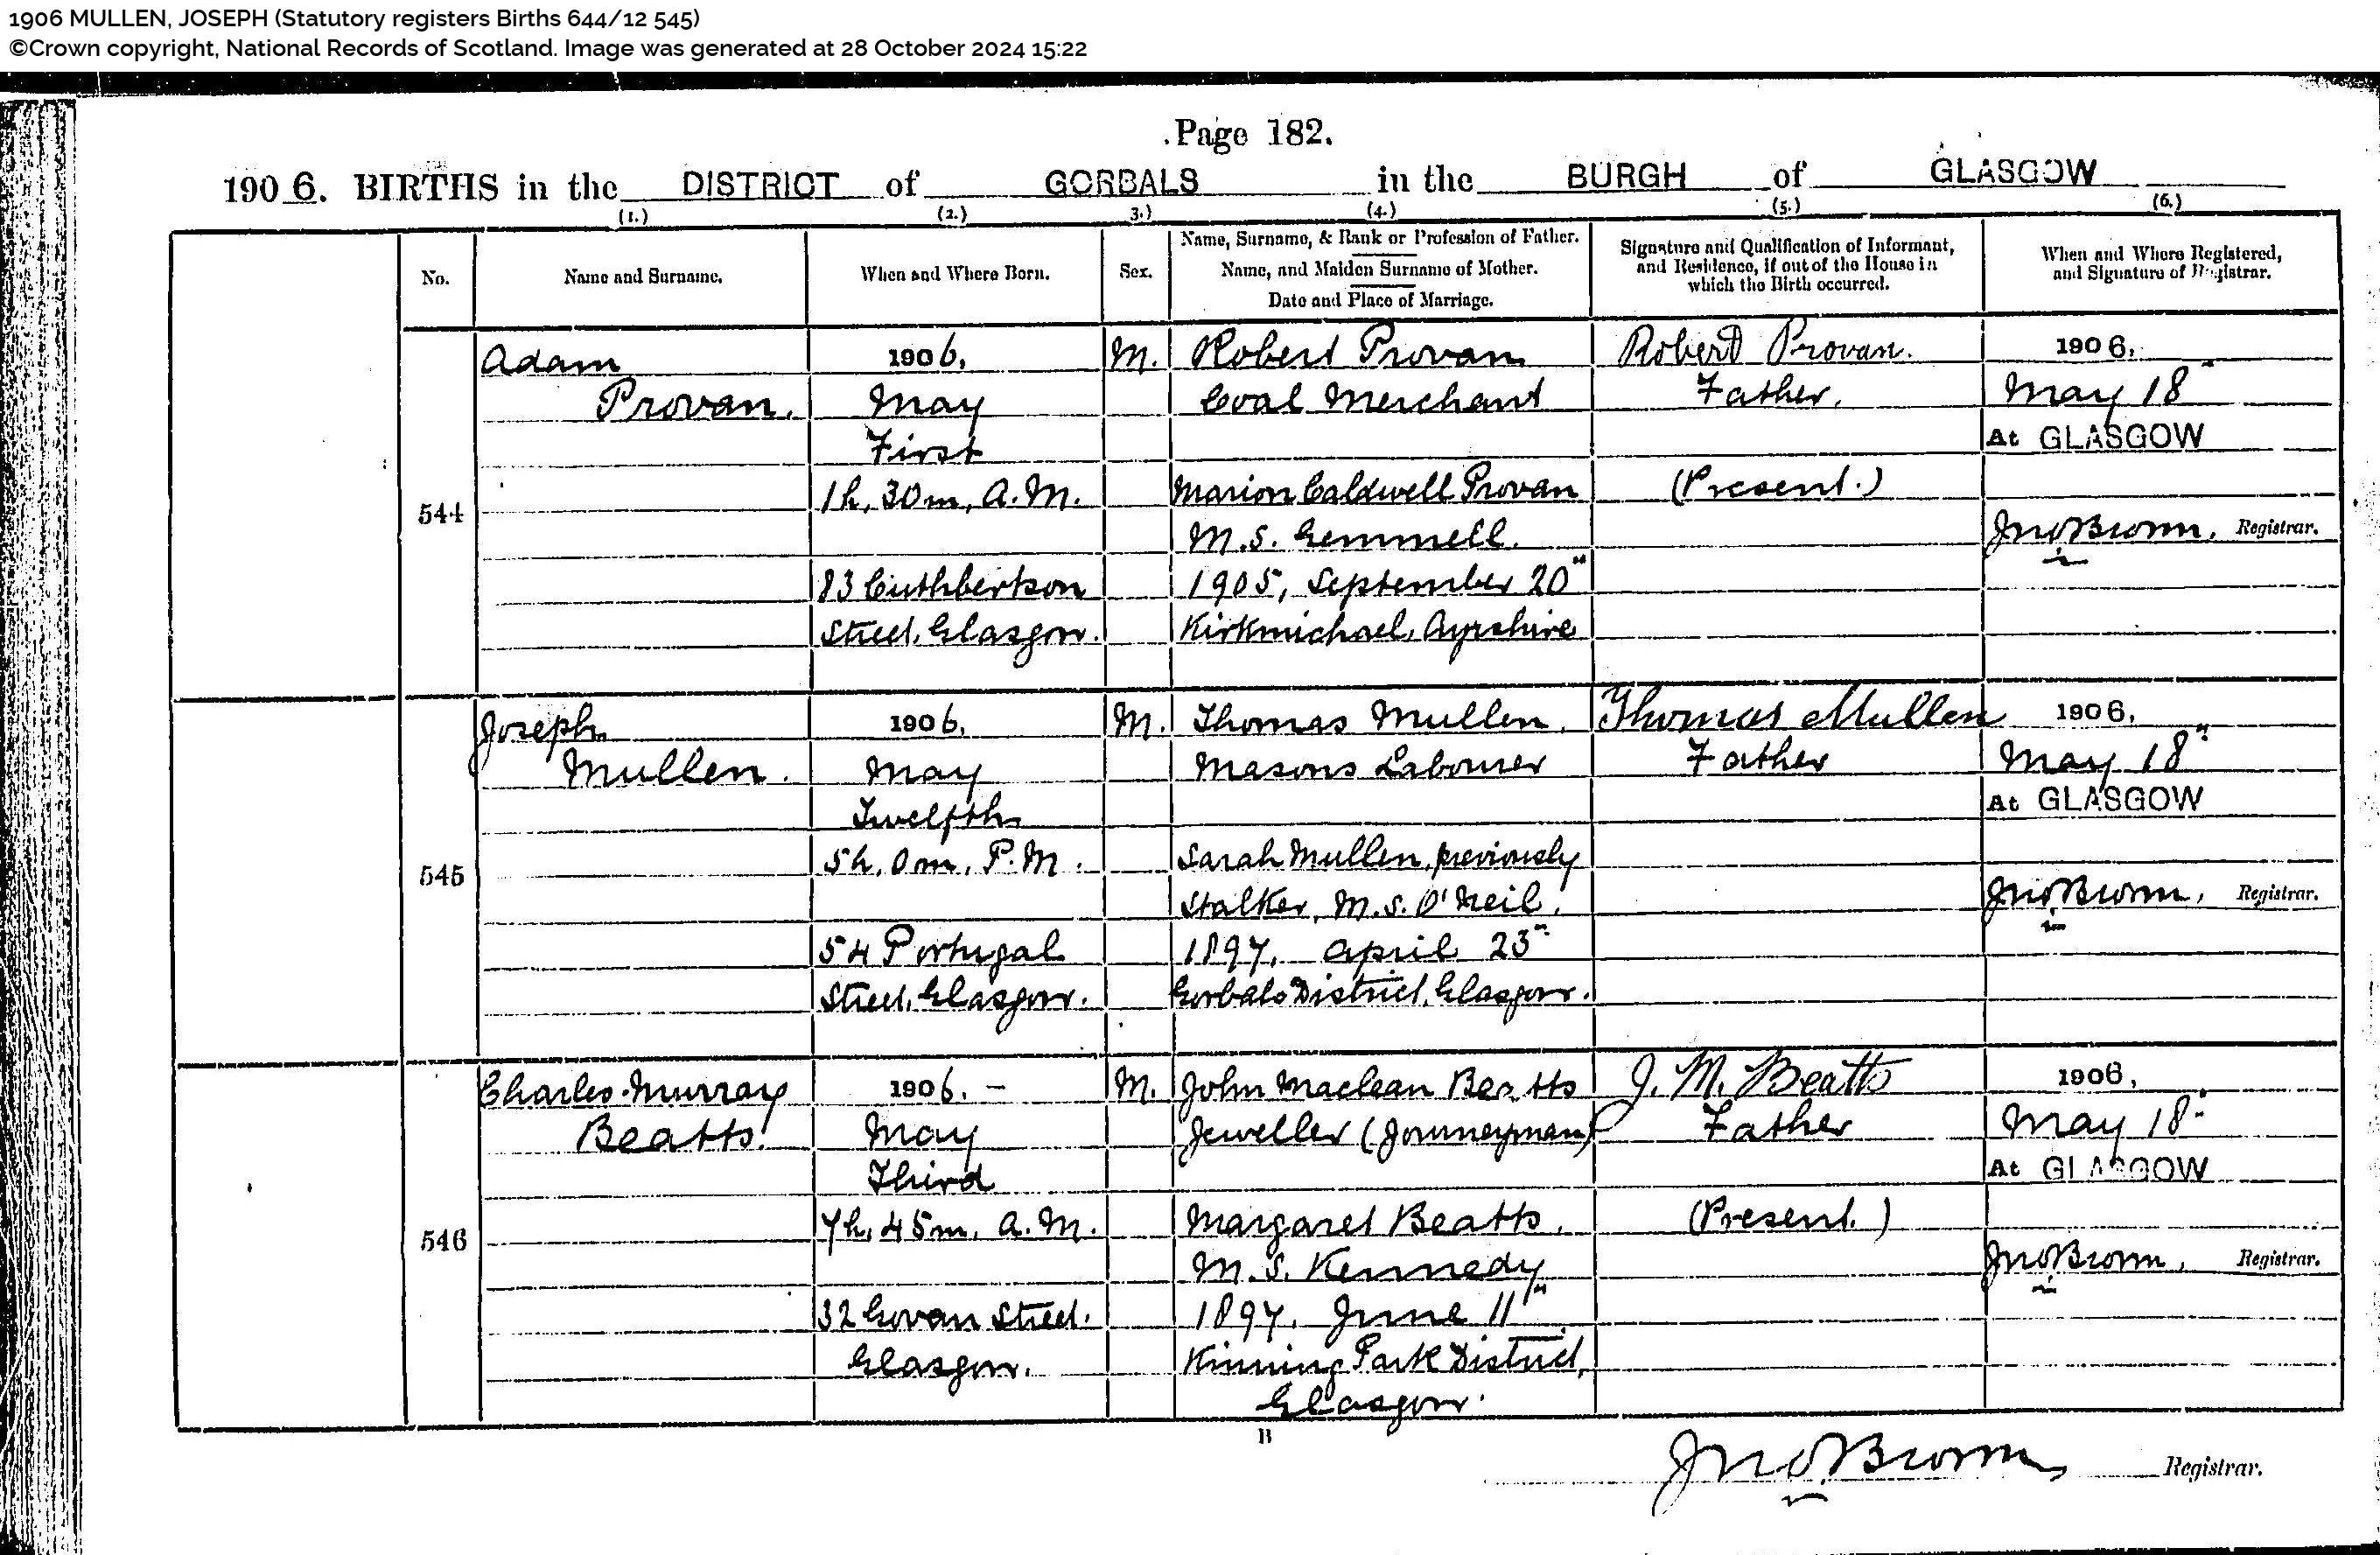 1906 MULLEN, JOSEPH (Statutory registers Births 644/12 545)
©Crown copyright, National Records of Scotland. Image was generated at 28 October 2024 15:22
Page 182.
1906. BIRTHS in the DISTRICT of GORBALS in the BURGH of GLASGOW
(1.) (2.) 3.) (4.) (5.) (6.)
No.
Name and Surname.
When and Where Born.
Sex.
Name, Surname, & Rank or Profession of Father.
Name, and Maiden Surname of Mother.
Date and Place of Marriage.
Signature and Qualification of Informant,
and Residence, if out of the House in
which the Birth occurred.
When and Where Registered,
and Signature of Registrar.
544
Adam
Provan.
1906,
May
First
1h, 30m, A.M.
83 Cuthbertson
Street, Glasgow.
M.
Robert Provan
Coal Merchant
Marion Caldwell Provan
M.S. Gemmell.
1905, September 20"
Kirkmichael, Ayrshire
Robert Provan.
Father.
(Present.)
1906,
May 18"
At GLASGOW
Jno Brown, Registrar.
545
Joseph
Mullen.
1906,
May
Twelfth
5h, 0m, P.M.
54 Portugal
Street, Glasgow.
M.
Thomas Mullen,
Masons Labourer
Sarah Mullen, previously
Stalker, M.S. O'Neil,
1897, April 23"
Gorbals District, Glasgow.
Thomas Mullen
Father
1906,
May 18"
At GLASGOW
Jno Brown, Registrar.
546
Charles Murray
Beatts.
1906. -
May
Third
7h, 45m, A.M.
32 Govan Street.
Glasgow.
M.
John Maclean Beatts
Jeweller (Journeyman)
Margaret Beatts,
M.S. Kennedy
1897, June 11"
Kinning Park District,
Glasgow.
J. M. Beatts
Father
(Present.)
1906,
May 18"
At GLASGOW
Jno Brown, Registrar.
B
Jno Brown Registrar.